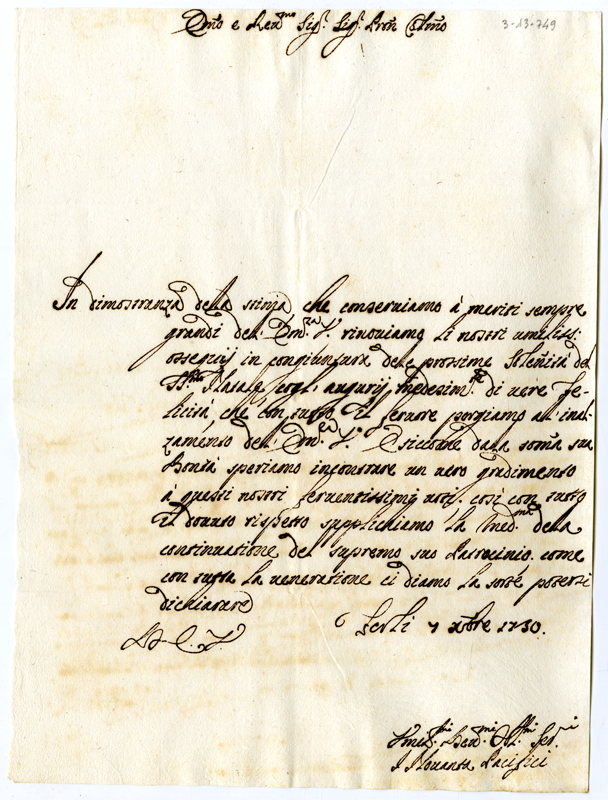 Em̃o e Reu.mo Sig.r Sig.r Pron Colmo
3-13-749
In dimostranza della stima, che conseruiamo à meriti sempre
grandi dell' Em.za V. rinouiamo li nostri umiliss:
ossequij in congiuntura delle prossime Solen̄ità del
SS.mo Natale cogl' augurij medesimam.te di uere fe-
licità, che con tutto il feruore porgiamo all' inal-
zamento dell' Em.za V. E siccome dalla som̄a sua
Bontà speriamo incontrare un uero gradimento
à questi nostri feruentissimi uoti, così con tutto
il douuto rispetto supplichiamo la Med.ma della
continuatione del supremo suo Patrocinio, come
con tutta la ueneratione ci diamo la sorte poterci
dichiarare
Forlì 7 xbre 1730.
Vmil.mi Deu.mi Obl.mi Ser.i
I Nouanta Pacifici